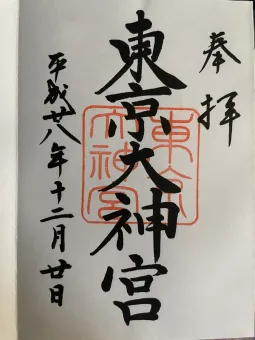 奉拝
東京大神宮
東京大神宮
平成廿八年十二月廿日